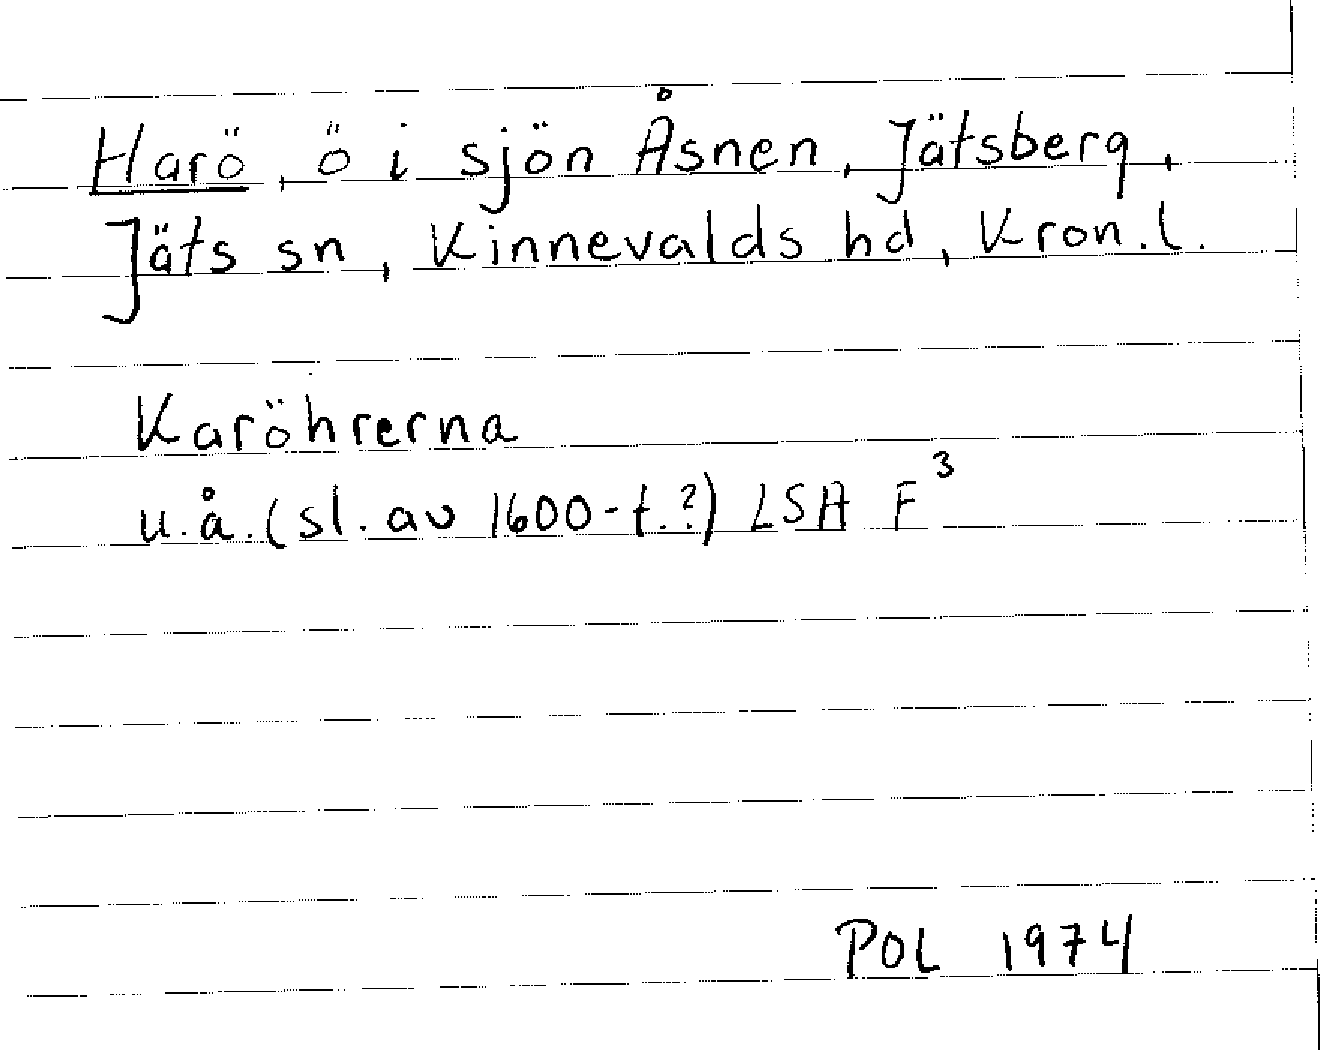 Harö, ö i sjön Åsnen, Jätsberg,
Jäts sn, Kinnevalds hd, Kron.l.
Karöhrerna
u.å.(sl. av 1600-t.?) LSA F³
POL 1974